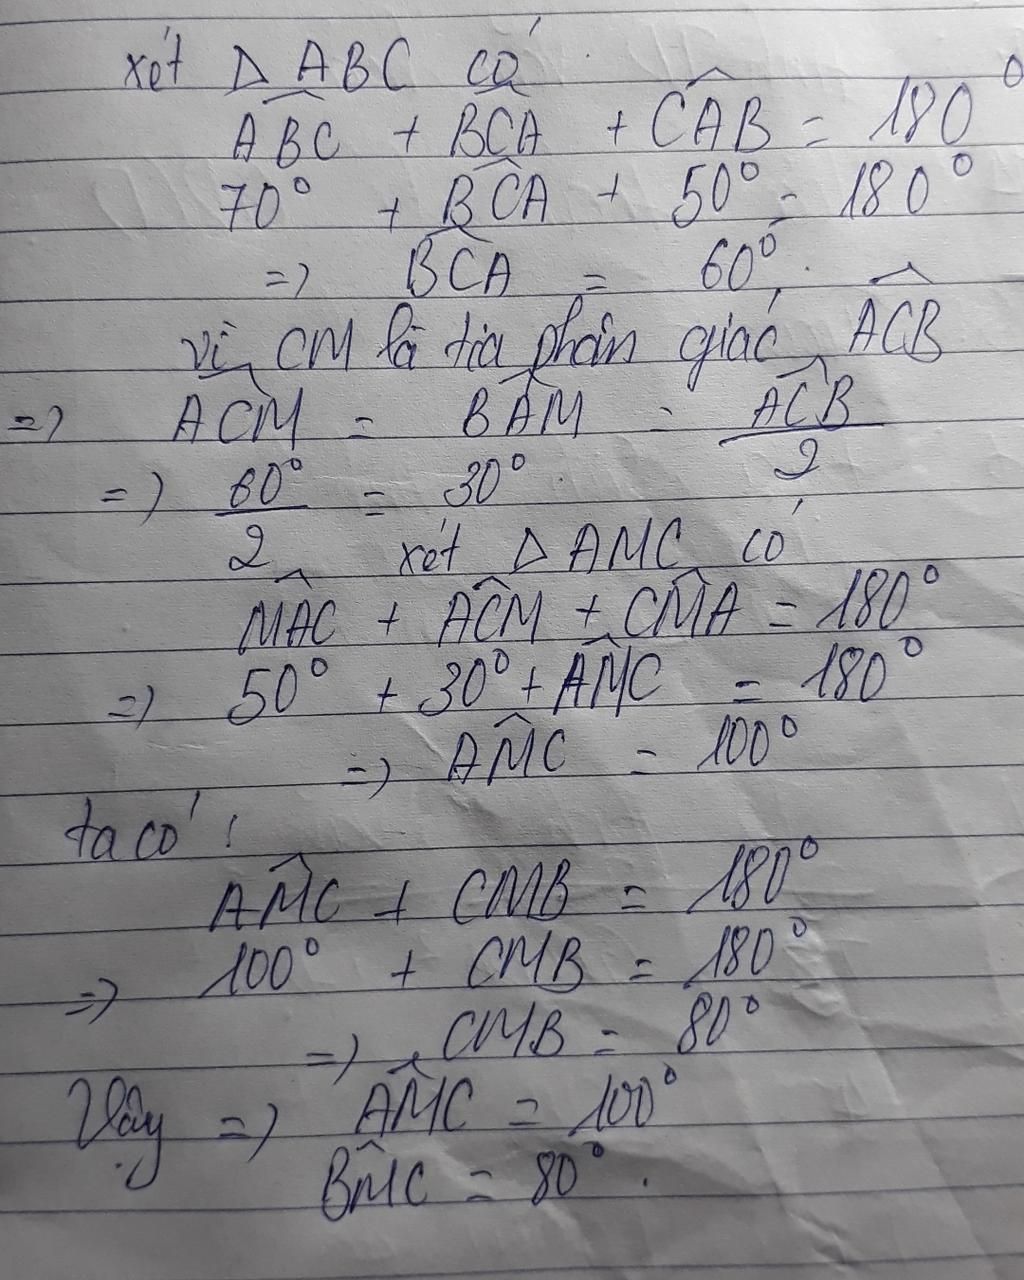 xét Δ ABC có
ABC + BCA + CAB = 180°
70° + BCA + 50° = 180°
=> BCA = 60°.
vì CM là tia phân giác ACB
=> ACM = BAM = ACB/2
=> 60°/2 = 30°.
xét Δ AMC có
MAC + ACM + CMA = 180°
=> 50° + 30° + AMC = 180°
=> AMC = 100°
ta có :
AMC + CMB = 180°
=> 100° + CMB = 180°
=> CMB = 80°
Vậy => AMC = 100°
BMC = 80°.